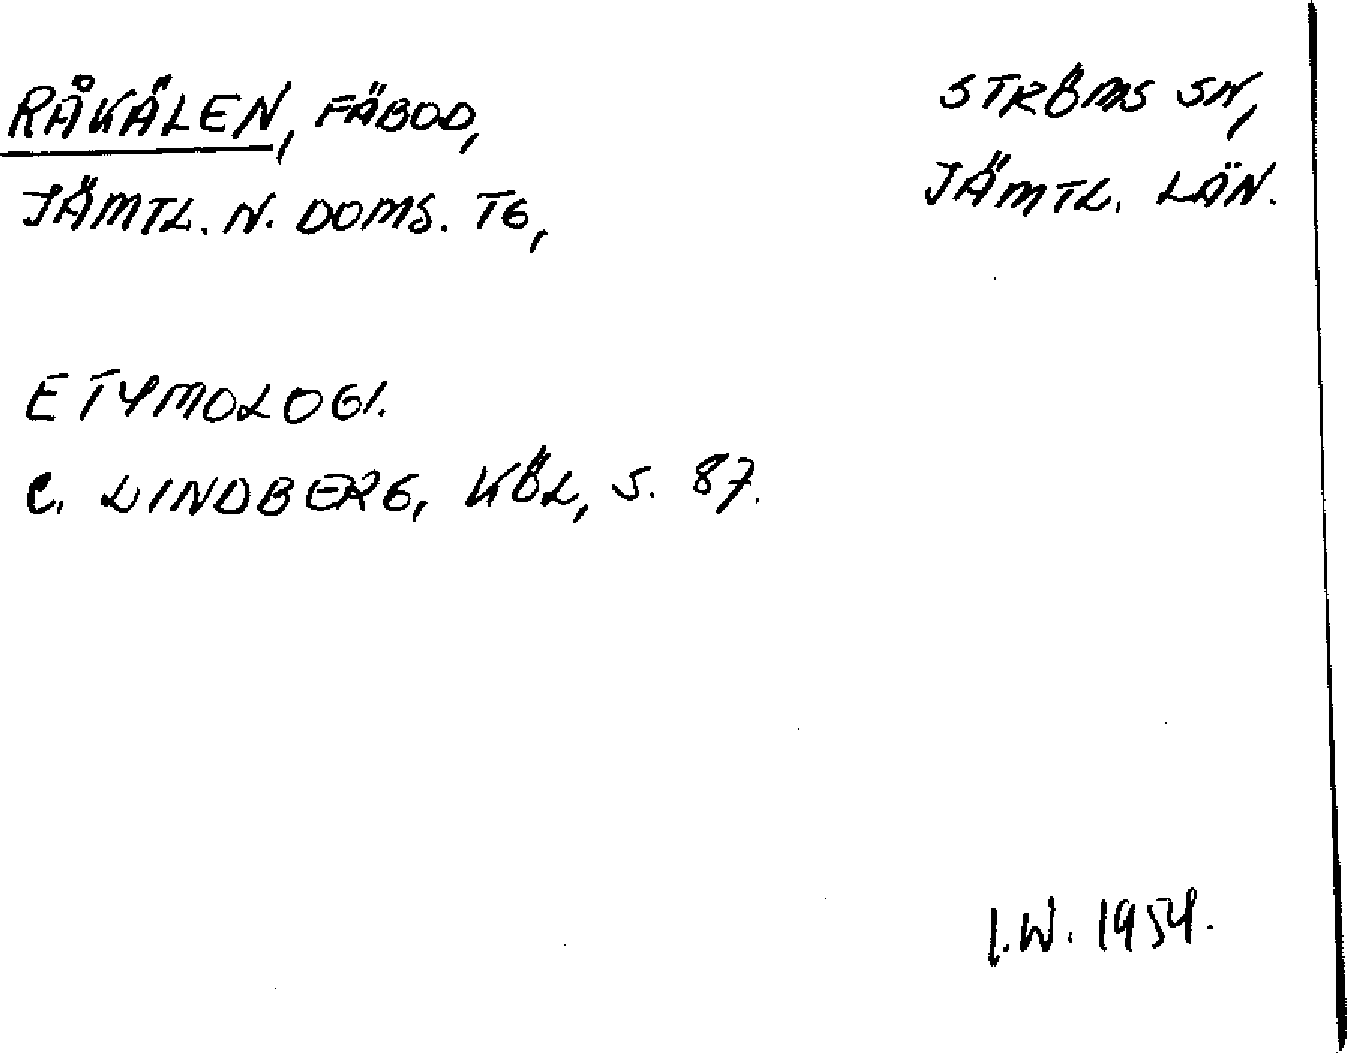 RÅKÄLEN, FÄBOD,
STRÖMS SN,
JÄMTL. N. DOMS. TG,
JÄMTL. LÄN.
ETYMOLOGI.
C. LINDBERG, KÖL, S. 87.
I.W. 1954.